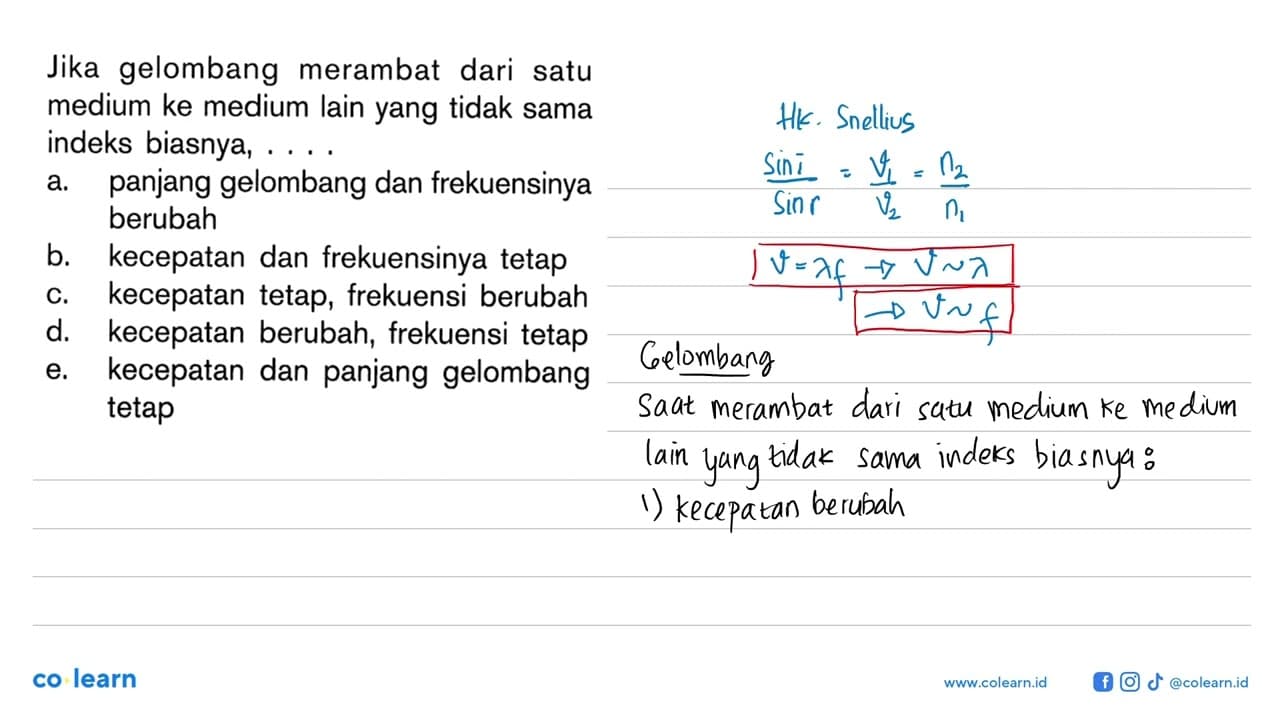 Jika gelombang merambat dari satu
medium ke medium lain yang tidak sama
indeks biasnya, . . . .
a. panjang gelombang dan frekuensinya
berubah
b. kecepatan dan frekuensinya tetap
c. kecepatan tetap, frekuensi berubah
d. kecepatan berubah, frekuensi tetap
e. kecepatan dan panjang gelombang
tetap
Hk. Snellius
sin i / sin r = v₁ / v₂ = n₂ / n₁
v = λf → v ~ λ
→ v ~ f
Gelombang
Saat merambat dari satu medium ke medium
lain yang tidak sama indeks biasnya :
1) kecepatan berubah
co learn
www.colearn.id
@colearn.id